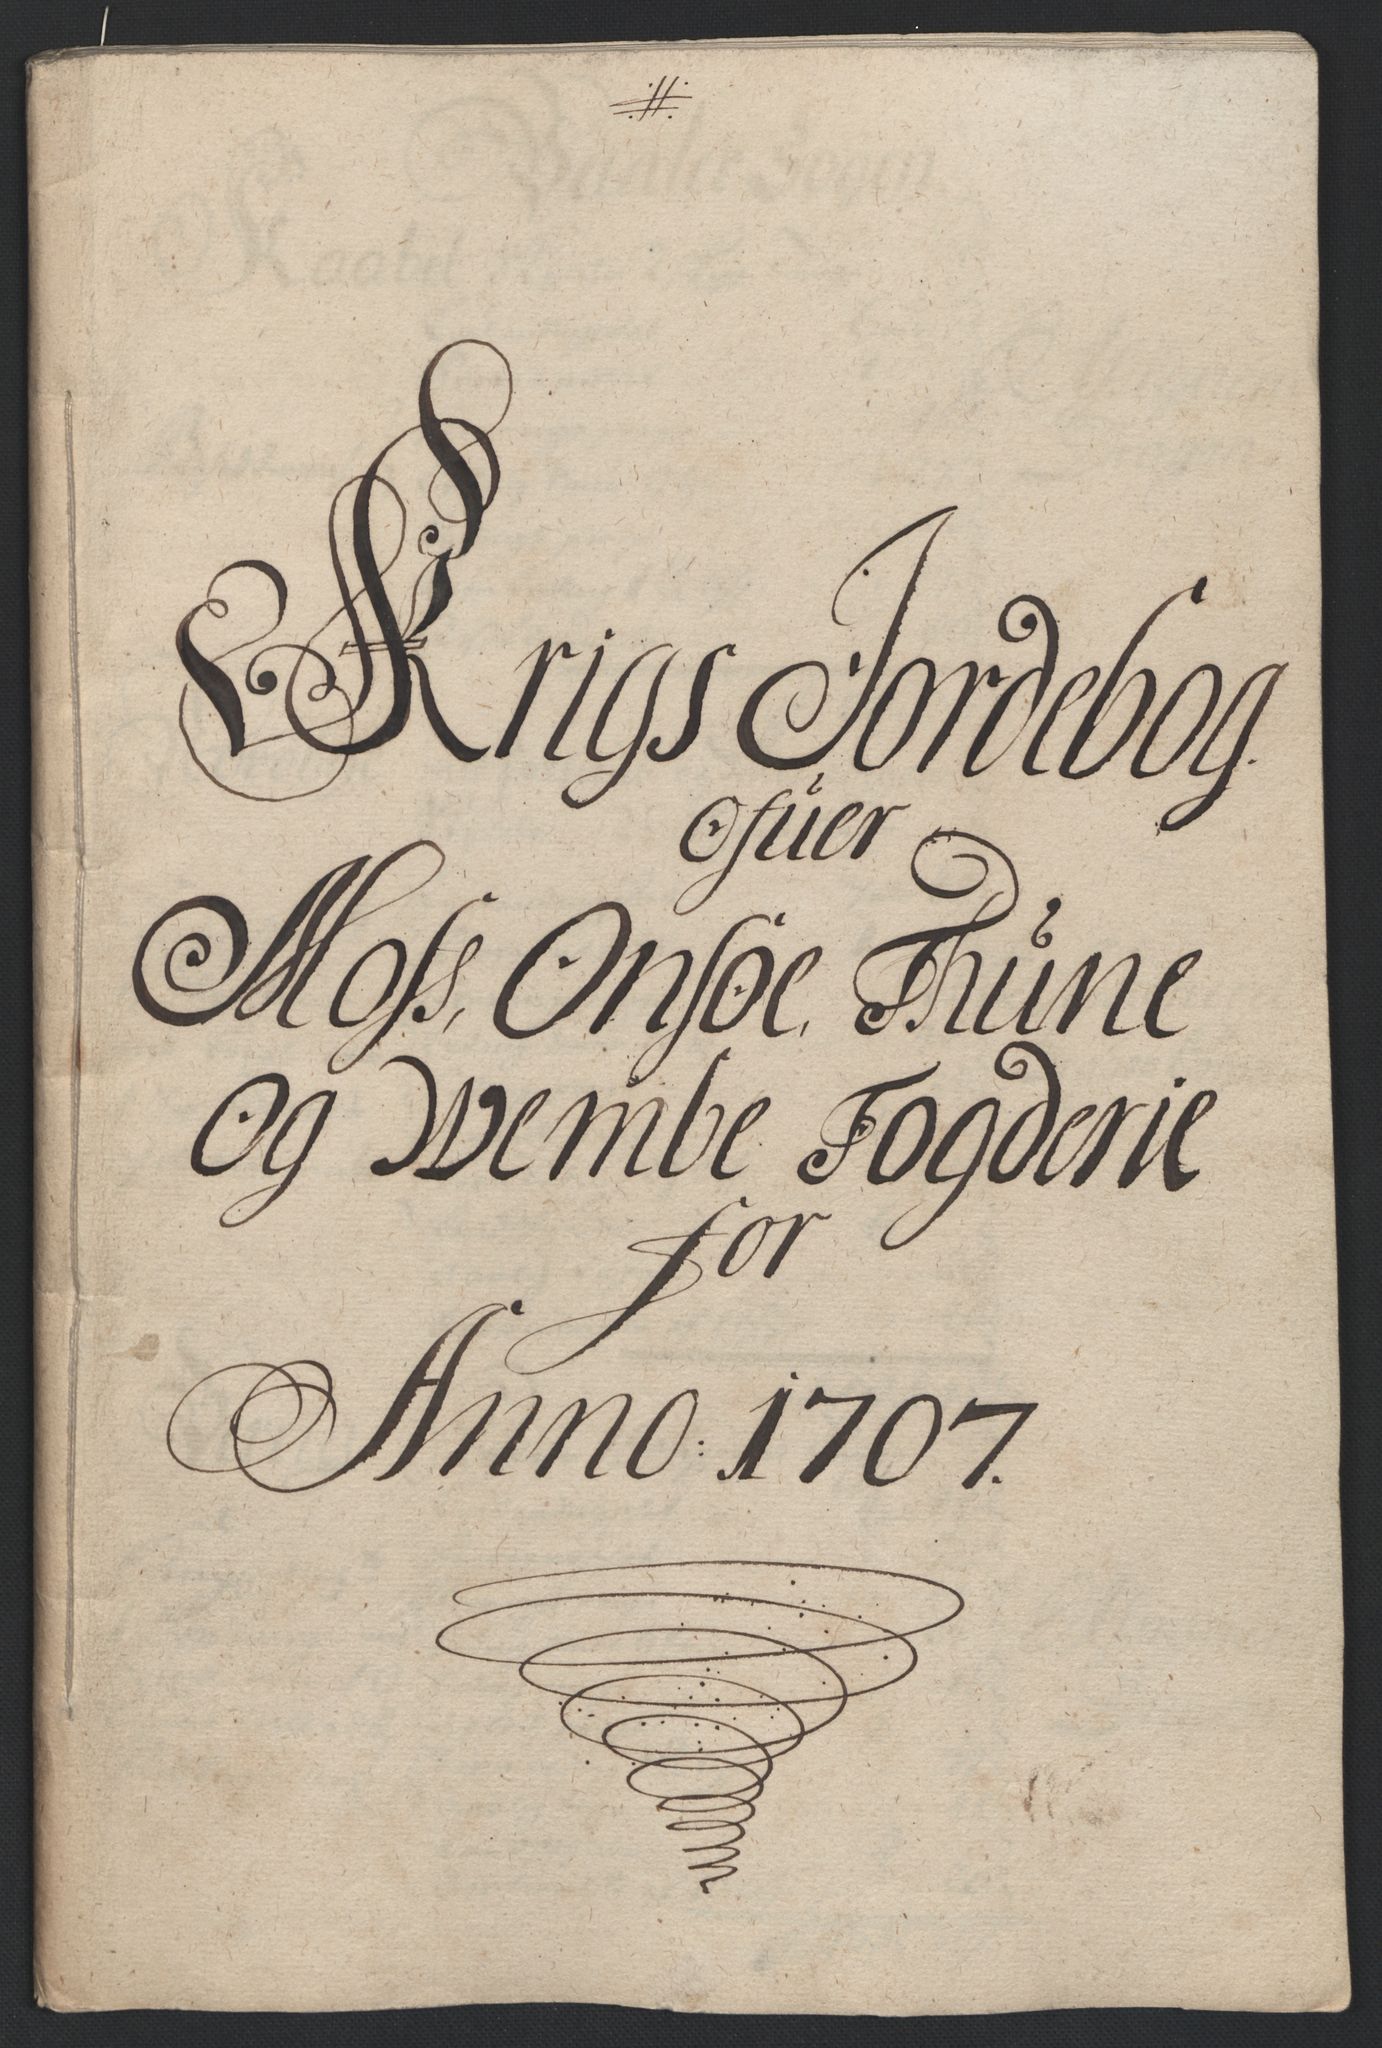 Krigs Jordebog.
ofuer
Moss, Onsöe, Thune
og Wembe Fogderie
for
Anno: 1707.